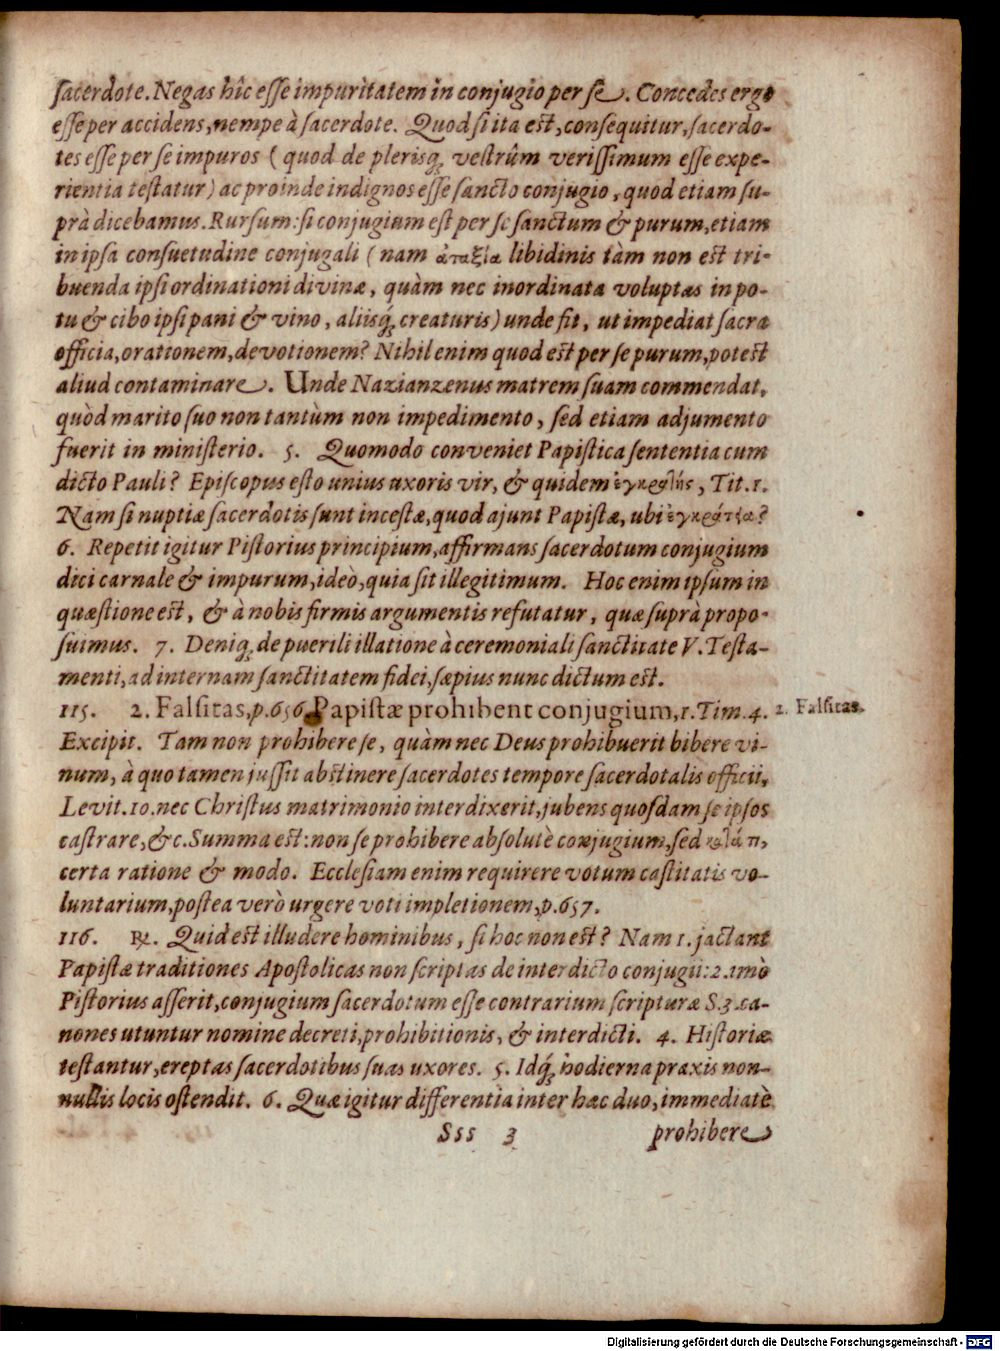 sacerdote. Negas hîc esse impuritatem in conjugio per se. Concedes ergo
esse per accidens, nempe à sacerdote. Quod si ita est, consequitur, sacerdo-
tes esse per se impuros ( quod de plerisq; vestrûm verissimum esse expe-
rientia testatur ) ac proinde indignos esse sancto conjugio, quod etiam su-
prà dicebamus. Rursum: si conjugium est per se sanctum & purum, etiam
in ipsa consuetudine conjugali ( nam ἀταξία libidinis tàm non est tri-
buenda ipsi ordinationi divinæ, quàm nec inordinata voluptas in po-
tu & cibo ipsi pani & vino, aliisq; creaturis ) unde fit, ut impediat sacra
officia, orationem, devotionem? Nihil enim quod est per se purum, potest
aliud contaminare. Unde Nazianzenus matrem suam commendat,
quòd marito suo non tantùm non impedimento, sed etiam adjumento
fuerit in ministerio. 5. Quomodo conveniet Papistica sententia cum
dicto Pauli? Episcopus esto unius uxoris vir, & quidem ἐγκρατὴς, Tit. 1.
Nam si nuptiæ sacerdotis sunt incestæ, quod ajunt Papistæ, ubi ἐγκράτεια?
6. Repetit igitur Pistorius principium, affirmans sacerdotum conjugium
dici carnale & impurum, ideò, quia sit illegitimum. Hoc enim ipsum in
quæstione est, & à nobis firmis argumentis refutatur, quæ suprà propo-
suimus. 7. Deniq; de puerili illatione à ceremoniali sanctitate V. Testa-
menti, ad internam sanctitatem fidei, sæpius nunc dictum est.
115. 2. Falsitas, p. 656. Papistæ prohibent conjugium, 1. Tim. 4. 2. Falsitas.
Excipit. Tam non prohibere se, quàm nec Deus prohibuerit bibere vi-
num, à quo tamen jussit abstinere sacerdotes tempore sacerdotalis officii,
Levit. 10. nec Christus matrimonio interdixerit, jubens quosdam se ipsos
castrare, &c. Summa est: non se prohibere absolutè conjugium, sed κατά τι,
certa ratione & modo. Ecclesiam enim requirere votum castitatis vo-
luntarium, postea verò urgere voti impletionem, p. 657.
116. ℞. Quid est illudere hominibus, si hoc non est? Nam 1. jactant
Papistæ traditiones Apostolicas non scriptas de interdicto conjugii: 2. imò
Pistorius asserit, conjugium sacerdotum esse contrarium scripturæ S. 3. ca-
nones utuntur nomine decreti, prohibitionis, & interdicti. 4. Historiæ
testantur, ereptas sacerdotibus suas uxores. 5. Idq; hodierna praxis non-
nullis locis ostendit. 6. Quæ igitur differentia inter hæc duo, immediatè
Sss 3 prohibere
Digitalisierung gefördert durch die Deutsche Forschungsgemeinschaft - DFG